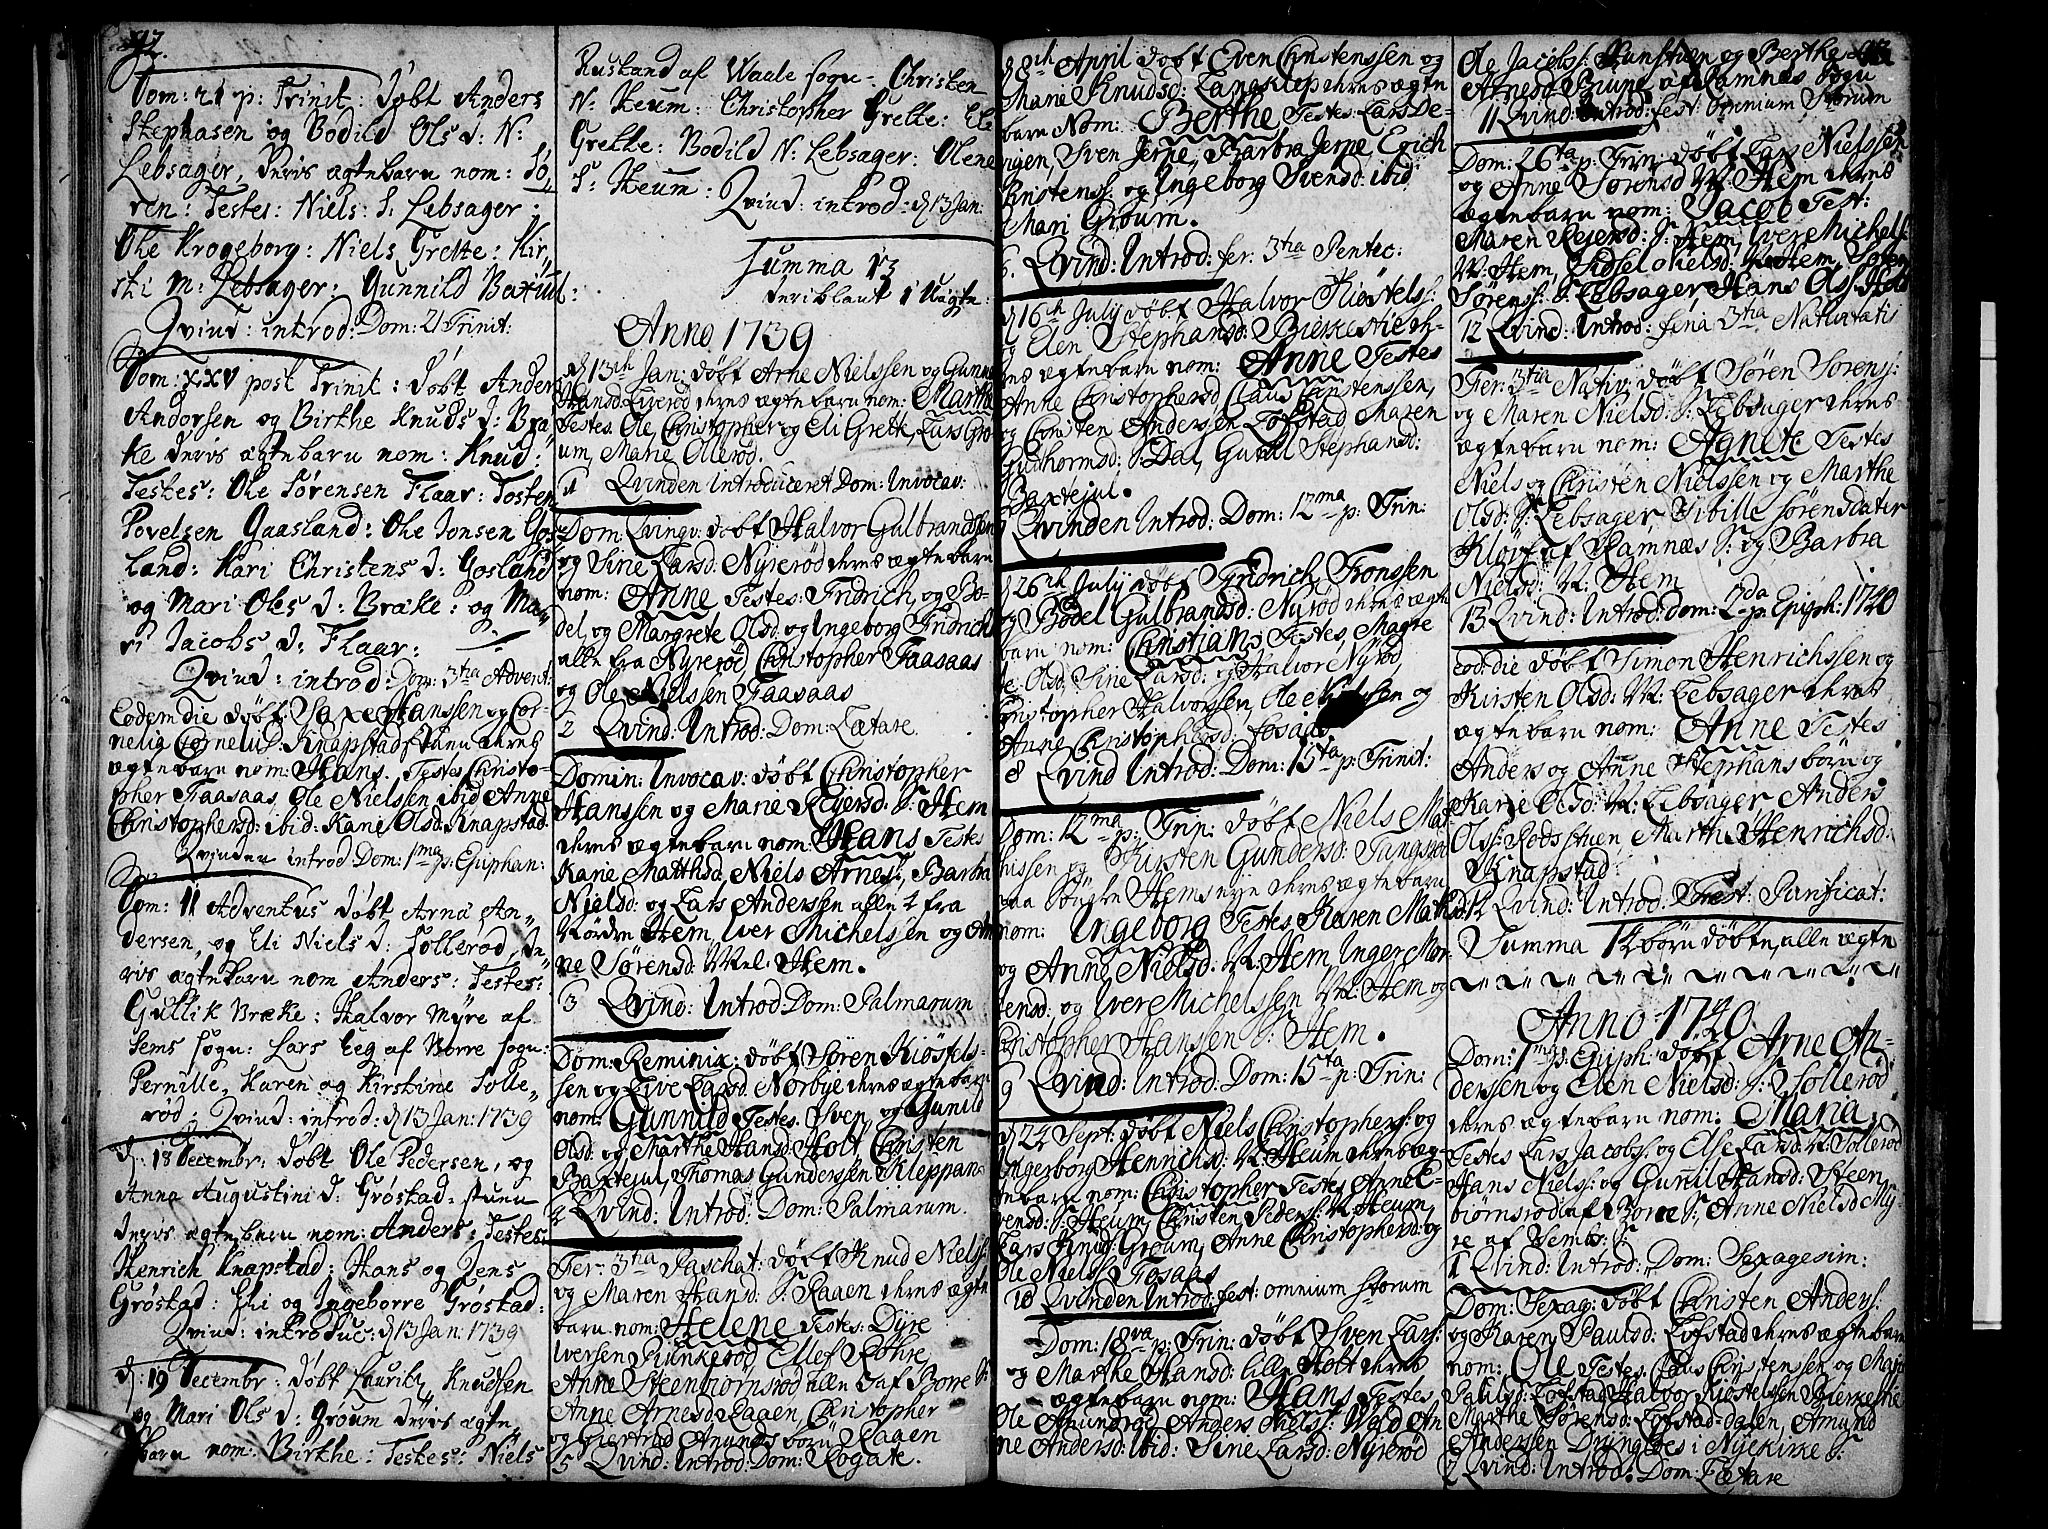 42.
Dom: 21 p: Trinit: døbt Anders
Stephasen og Bodild Ols d: N:
Lebsager, deris ægtebarn nom: Sø„
ren: Testes: Niels: S. Lebsager:
Ole Krogeborg: Niels Grette: Kir„
sti M: Lebsager: Gunnild Baxtiul:
Qvind: introd: Dom: 21 Trinit:
Dom: XXV post Trinit: døbt Anders
Andersen og Birthe Knuds d: Bræ„
ke deris ægtebarn nom: Knud:
Testes: Ole Sørensen Flaar: Tosten
Povelsen Gaasland: Ole Jonsen Gos„
land: Kari Christens d: Gosland
og Mari Ols d: Bræke: og Ma„
ri Jacobs d: Flaar:
Qvind: introd: Dom: 3tia Advent:
Eodem die døbt Saxe Hanssen og Cor-
nelia Cornelid: Knapstad deres
ægtebarn nom: Hans. Testes Christo-
pher Faasaas, Ole Nielssen ibid Anne
Christophersd: ibid: Karie Olsd: Knapstad.
Qvinden introd Dom: 1ma p: Epiphan:
Dom: 11 Adventus døbt Arne An„
dersen, og Eli Niels d: Sollerød, de„
ris ægtebarn nom Anders: Testes:
Gullik Bræke: Halvor Myre af
Sems sogn: Lars Eeg af Borre sogn:
Pernille, Karen og Kirstine Solle„
rød: Qvind: introd: d 13 Jan: 1739
d: 18 Decembr: døbt Ole Pedersen, og
Anna Augustini d: Grøstad-stuen
deris ægtebarn nom: Anders: Testes:
Henrich Knapstad: Hans og Jens
Grøstad: Eli og Ingeborre Grøstad:
Qvind: introduc: d 13 Jan: 1739
d: 19 Decembr: døbt Lauritz Knudsen
og Mari Ols d: Grøum deris ægte
barn nom: Birthe: Testes: Niels
Rusland af Waale sogn: Christen
N: Heum: Christopher Grette: Eli
Grette: Bodild N: Lebsager: Olene
S: Heum: Qvind: introd: d 13 Jan:
Summa 13
deriblant 1 Uægte:
Anno 1739
d 13th Jan: døbt Arne Nielssen og Gunni
Hansd: Liverød deres ægtebarn nom: Marthe
Testes. Ole, Christopher og Eli Grette, Lars Grø
um, Marie Ollerød.
1 Qvinden Introduceret Dom: Invocav:
Dom: Qvinqv: døbt Halvor Gulbrandssen
og Sirie Larsd: Nyrerød deres ægtebarn
nom: Anne Testes: Fridrich, og Bo-
del og Margrete Olsd: og Ingeborg Fridrichs
alle fra Nyrerød Christopher Faasaas
og Ole Nielssen Faasaas
2 Qvind: Introd: Dom: Lætare.
Domin: Invocav: døbt Christopher
Hanssen og Marie Rejersd: S: Hem
deres ægtebarn nom: Hans Testes
Karie Matthsd, Niels Arnes:, Barbra
Nielsd: og Lars Andersen alle fra
Nørdre Hem, Iver Michelsen og An
ne Sørensd: Mel: Hem.
3 Qvind: Introd: Dom: Palmarum
Dom: Reminix: døbt Søren Kiøstels-
sen og Live Larsd: Nørbye deres ægtebarn
nom: Gunnild Testes: Sven og Gunild
Olsd: og Marthe Hansd: Holt, Christen
Baxtejul, Thomas Gundersen Kleppan
4 Qvind: Introd: Dom: Palmarum.
Fer: 3tia Paschat: døbt Knud Niels:
og Maren Hansd: S: Raaen deres ægte
barn nom: Helene Testes: Dyre
Iversen Runkerød Ellef Røhre
Anne Steenbiørnsrød alle 3 af Borre S:
Anne Arnesd: Raaen, Christopher
og Giertrud Amunds børn Raaen
5 Qvind: Introd: Dom: Rogate.
d 8th April døbt Even Christenssen og
Marie Knudsd: Langklep deres ægte
barn Nom: Berthe Testes: Lars De-
ngen, Sven Jerpe, Barbra Jerpe Erich
Christenss: og Ingeborg Svensd: ibid
Mari Grøum.
6. Qvind: Introd: fer: 3tia Pentec:
d 16th July døbt Halvor Kiøstels:
og Elen Stephansd: Bierkestie de-
res ægtebarn nom: Anne Testes
Anne Christophersd, Claus Christenssen,
og Christen Andersen Lofstad Maren
Guthormsd: S: Dal, Gunil Stephansd:
Baxtejul.
7 Qvinden Introd: Dom: 12ma p: Trin:
d 26th July døbt Fridrich Tronssen
og Bodel Gulbrandsd: Nyrød deres ægte
barn nom: Christian Testes, Magre
te Olsd, Sirie Larsd: og Halvor Nyrød,
Christopher Halvorsen, Ole Nielssen og
Anne Christophersd: Fosaas
8 Qvind Introd: Dom: 15ta p: Trinit:
Dom: 12ma p: Trin: døbt Niels Mat-
hissen og Kirsten Gundersd:
paa Søndre Hems eye deres ægtebarn
nom: Ingeborg Testes Karen Mathisd:
og Anne Nielsd: N: Hem Inger Mor-
tensd: og Iver Michelssen M: Hem og
Christopher Hansen S: Hem.
9 Qvind: Introd: Dom: 15ta p: Trin:
d 24 Sept: døbt Niels Christophers: og
Ingerborg Henrichsd: N: Heum deres æg-
tebarn nom: Christopher Testes Anne E-
vensd: S: Heum, Christen Peders: N: Heum,
Lars Knud: Grøum, Anne Christophersd: og
Ole Niels: Fosaas
10 Qvinden Introd: fest: omnium storum
Dom: 18va p: Trin: døbt Sven Lars:
og Marthe Hansd: Lille Holt deres
ægtebarn nom: Hans Testes
Ole Amundrød Anders Niels: Wold An
ne Andersd: ibid: Sirie Larsd: Nyrerød
43
Ole Jacobs: Runstien og Berthe
Arnesd Brune af Ramnes sogn
11 Qvind: Introd: fest: Omnium Storum
Dom: 26ta p: Trin: døbt Lars Nielssen
og Anne Sørensd N: Hem deres
ægtebarn nom: Jacob Test:
Maren Rejersd: S: Hem, Iver Michels:
M: Hem, Sidsel Nielsd: Hem, Søren
Sørenss: S: Lebsager, Hans Ols: Holt
12 Qvind: Introd: feria 3tia Nativitatis
Fer: 3tia Nativ: døbt Søren Sørens:
og Maren Nielsd: S: Lebsager deres
ægtebarn nom: Agnete Testes
Niels og Christen Nielssen og Marthe
Olsd: S: Lebsager, Sibille Sørensdater
Kløvf af Ramnæs S: og Barbra
Nielsd: N: Hem
13 Qvind: Introd: dom: 2da p: Epiph: 1740
eod: die døbt Simon Henrichssen og
Kirsten Olsd: N: Lebsager deres
ægtebarn nom: Anne Testes
Anders og Anne Stephans børn og
Karie Olsd: N: Lebsager Anders
Ols: Rodsstuen Marthe Henrichsd:
Knapstad.
14 Qvind: Introd: Fest: Purificat:
Summa 14 børn døbte, alle ægte
Anno 1740
Dom: 1ma p: Epiph: døbt Arne An-
derssen og Elen Nielsd: S: Sollerød
deres ægtebarn nom: Maria,
Testes Lars Jacobs: og Else Larsd: N: Sollerød
Hans Niels: og Gunil Hansd: Steen
biørnsrød af Borre S:, Anne Nielsd My
re af Sembs: S:
1 Qvind: Introd: Dom: Sexagesim:
Dom: Sexag: døbt Christen Anders:
og Karen Paulsd: Lofstad deres ægtebarn
nom: Ole Testes Claus Christenssen og Mari
Paulsd: Lofstad Halvor Kiøstelssen Bierkestie
Marthe Sørensd: Lofstad-dalen, Amund
Andersen Dringløes i Nyekirke S:
2 Qvind: Introd: Dom: Lætare